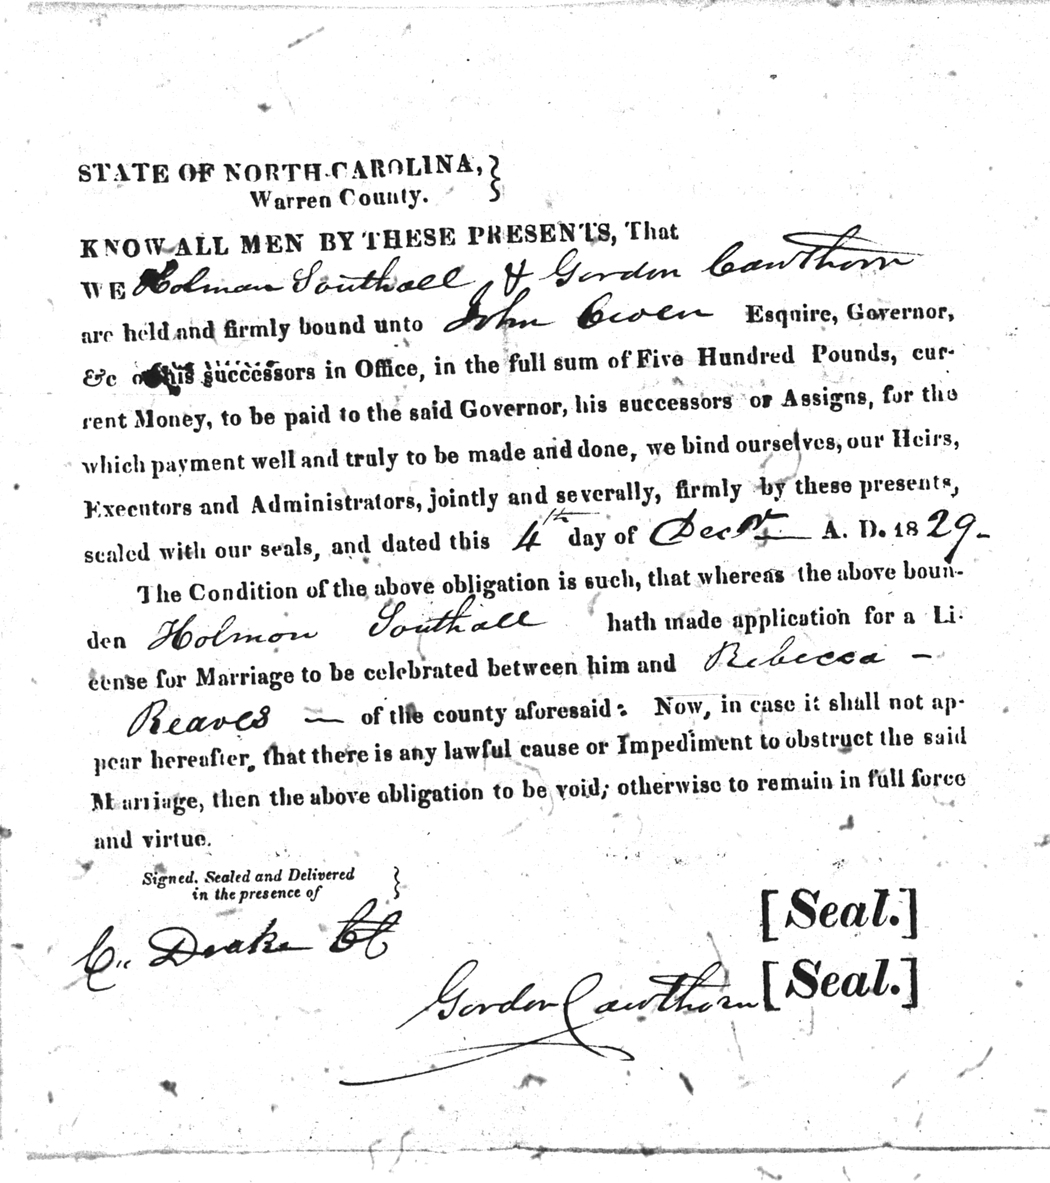 STATE OF NORTH-CAROLINA,
Warren County.
KNOW ALL MEN BY THESE PRESENTS, That
WE Holman Southall & Gordon Cawthorn
are held and firmly bound unto John Owen Esquire, Governor,
&c his successors in Office, in the full sum of Five Hundred Pounds, cur-
rent Money, to be paid to the said Governor, his successors or Assigns, for the
which payment well and truly to be made and done, we bind ourselves, our Heirs,
Executors and Administrators, jointly and severally, firmly by these presents,
sealed with our seals, and dated this 4th day of Decr A. D. 1829-
The Condition of the above obligation is such, that whereas the above boun-
den Holmon Southall hath made application for a Li-
cense for Marriage to be celebrated between him and Rebecca -
Reaves - of the county aforesaid: Now, in case it shall not ap-
pear hereafter, that there is any lawful cause or Impediment to obstruct the said
Marriage, then the above obligation to be void; otherwise to remain in full force
and virtue.
Signed, Sealed and Delivered
in the presence of
[Seal.]
C. Drake Ct
Gordon Cawthorn [Seal.]